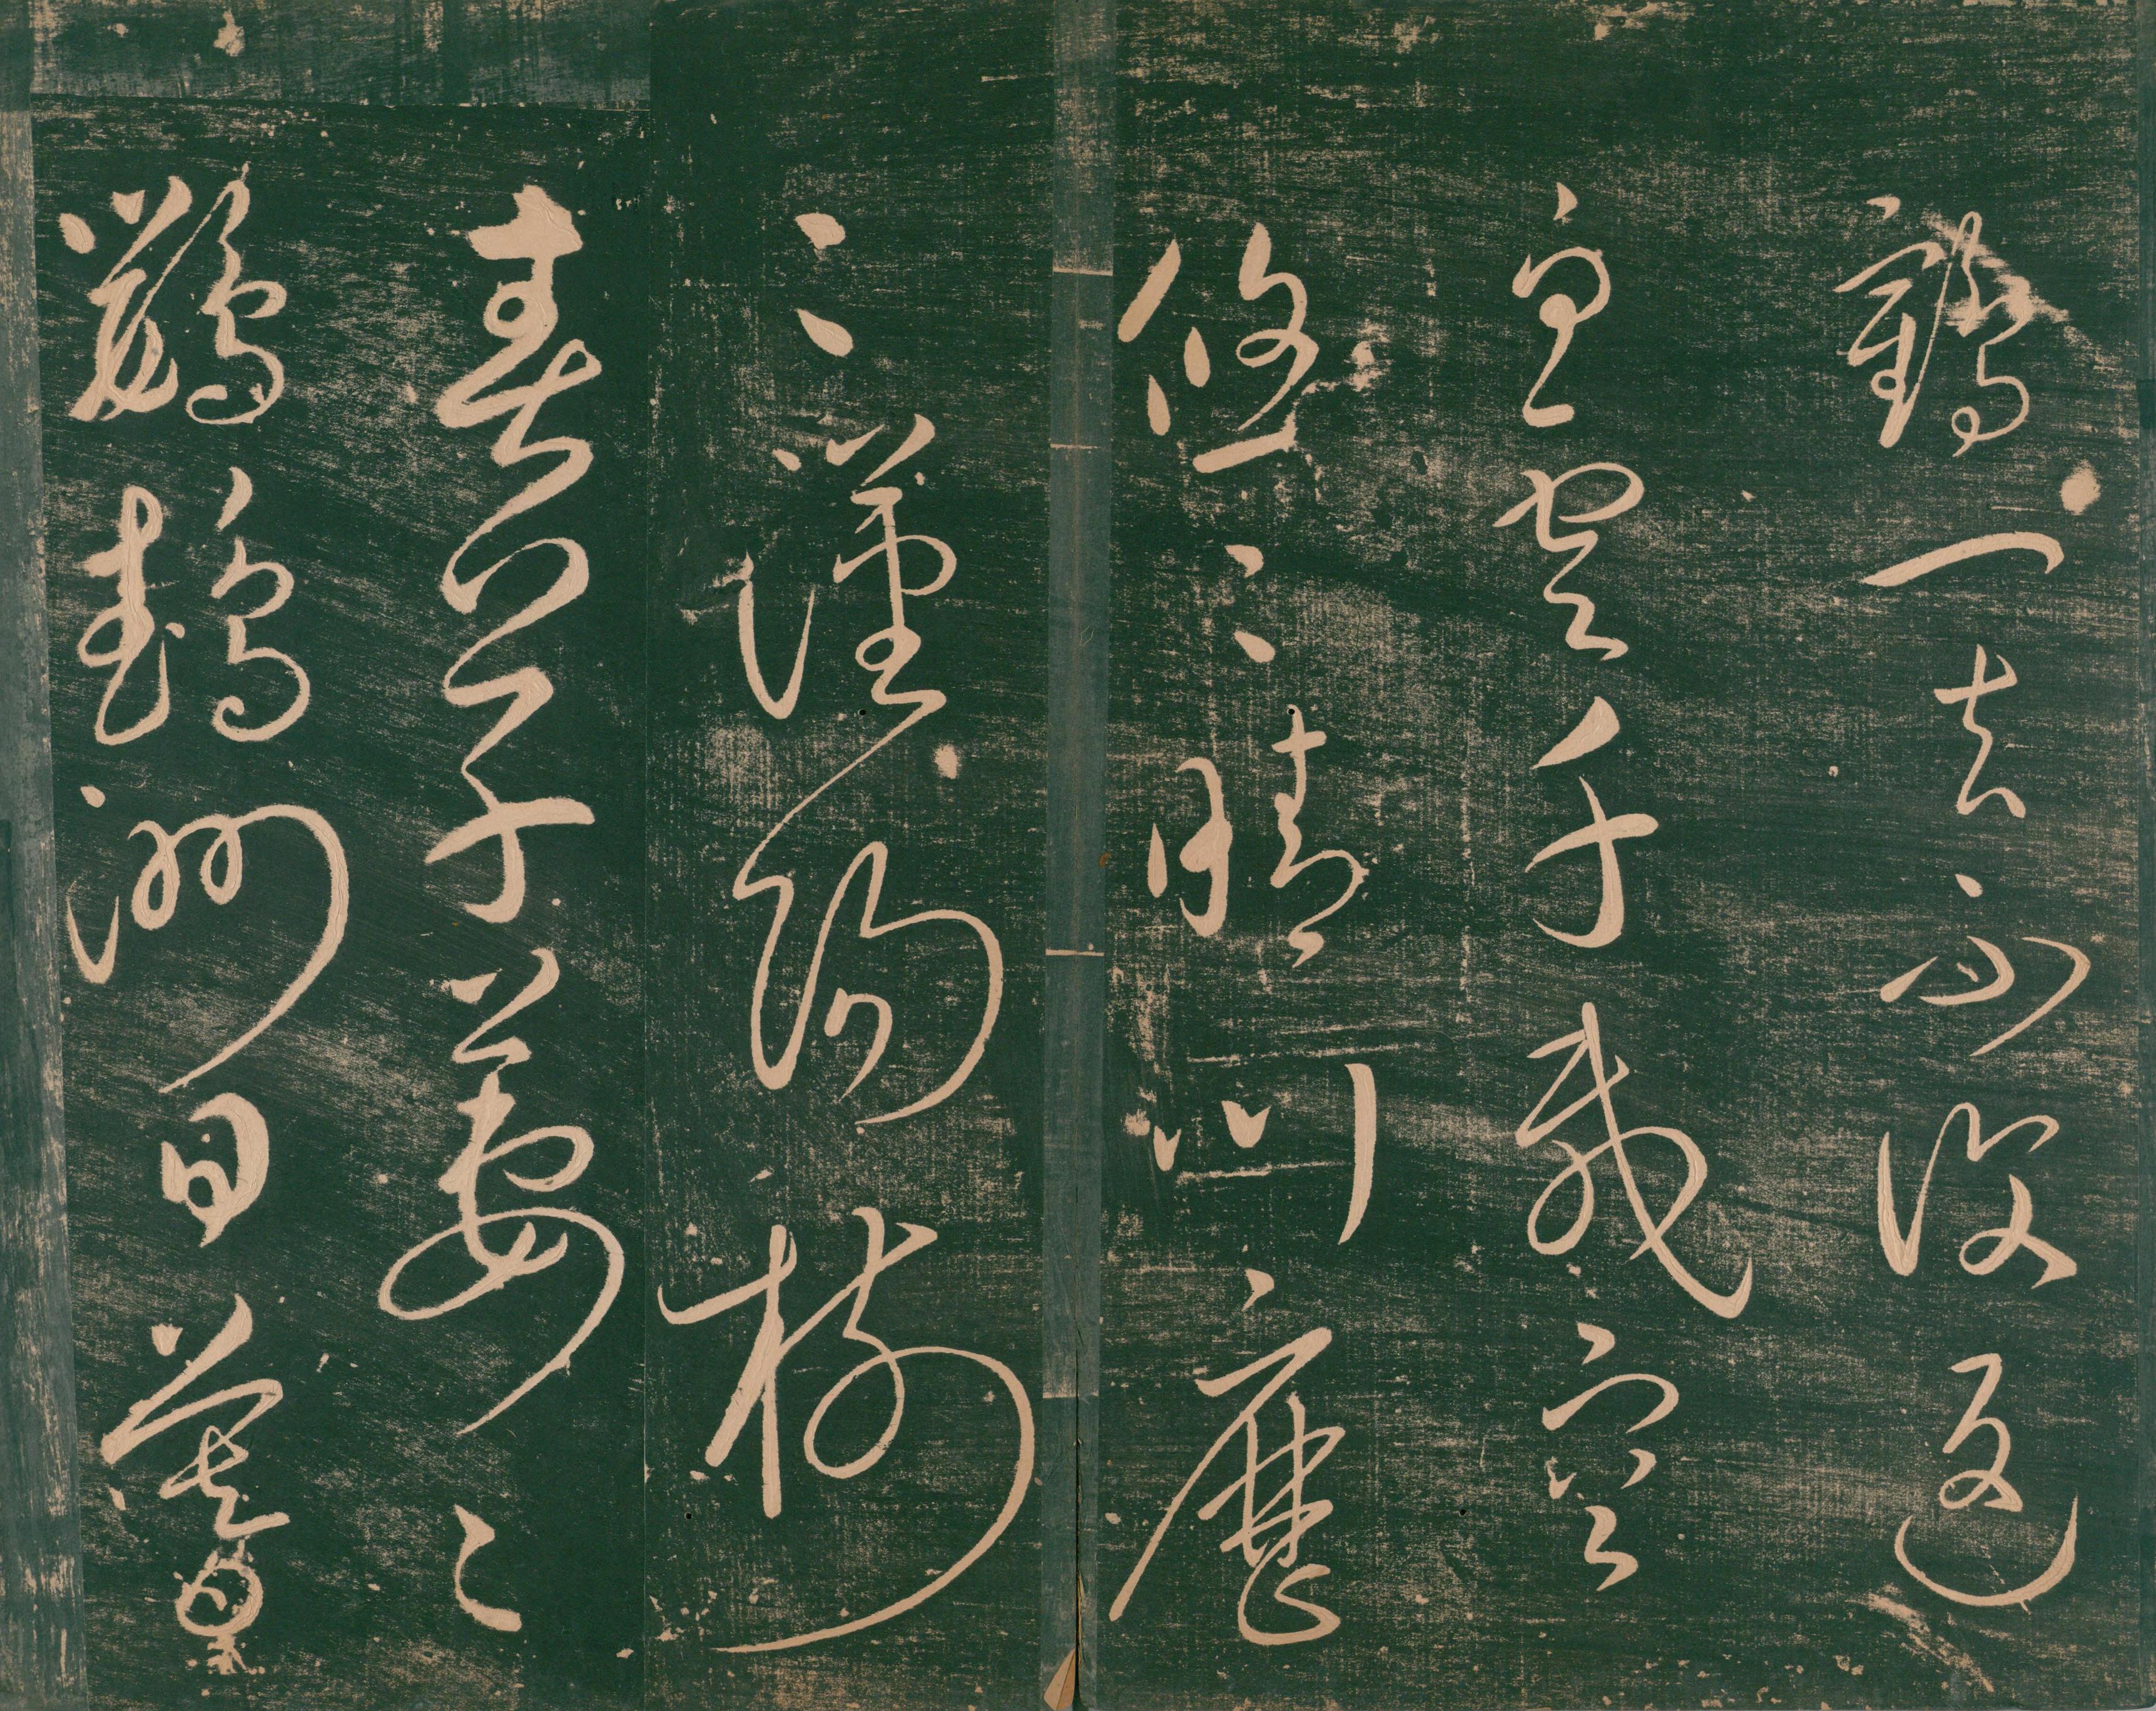 鶴一去不復返
白雲千載空
悠〻晴川歷
〻漢陽樹
春草萋〻
鸚鵡洲日暮